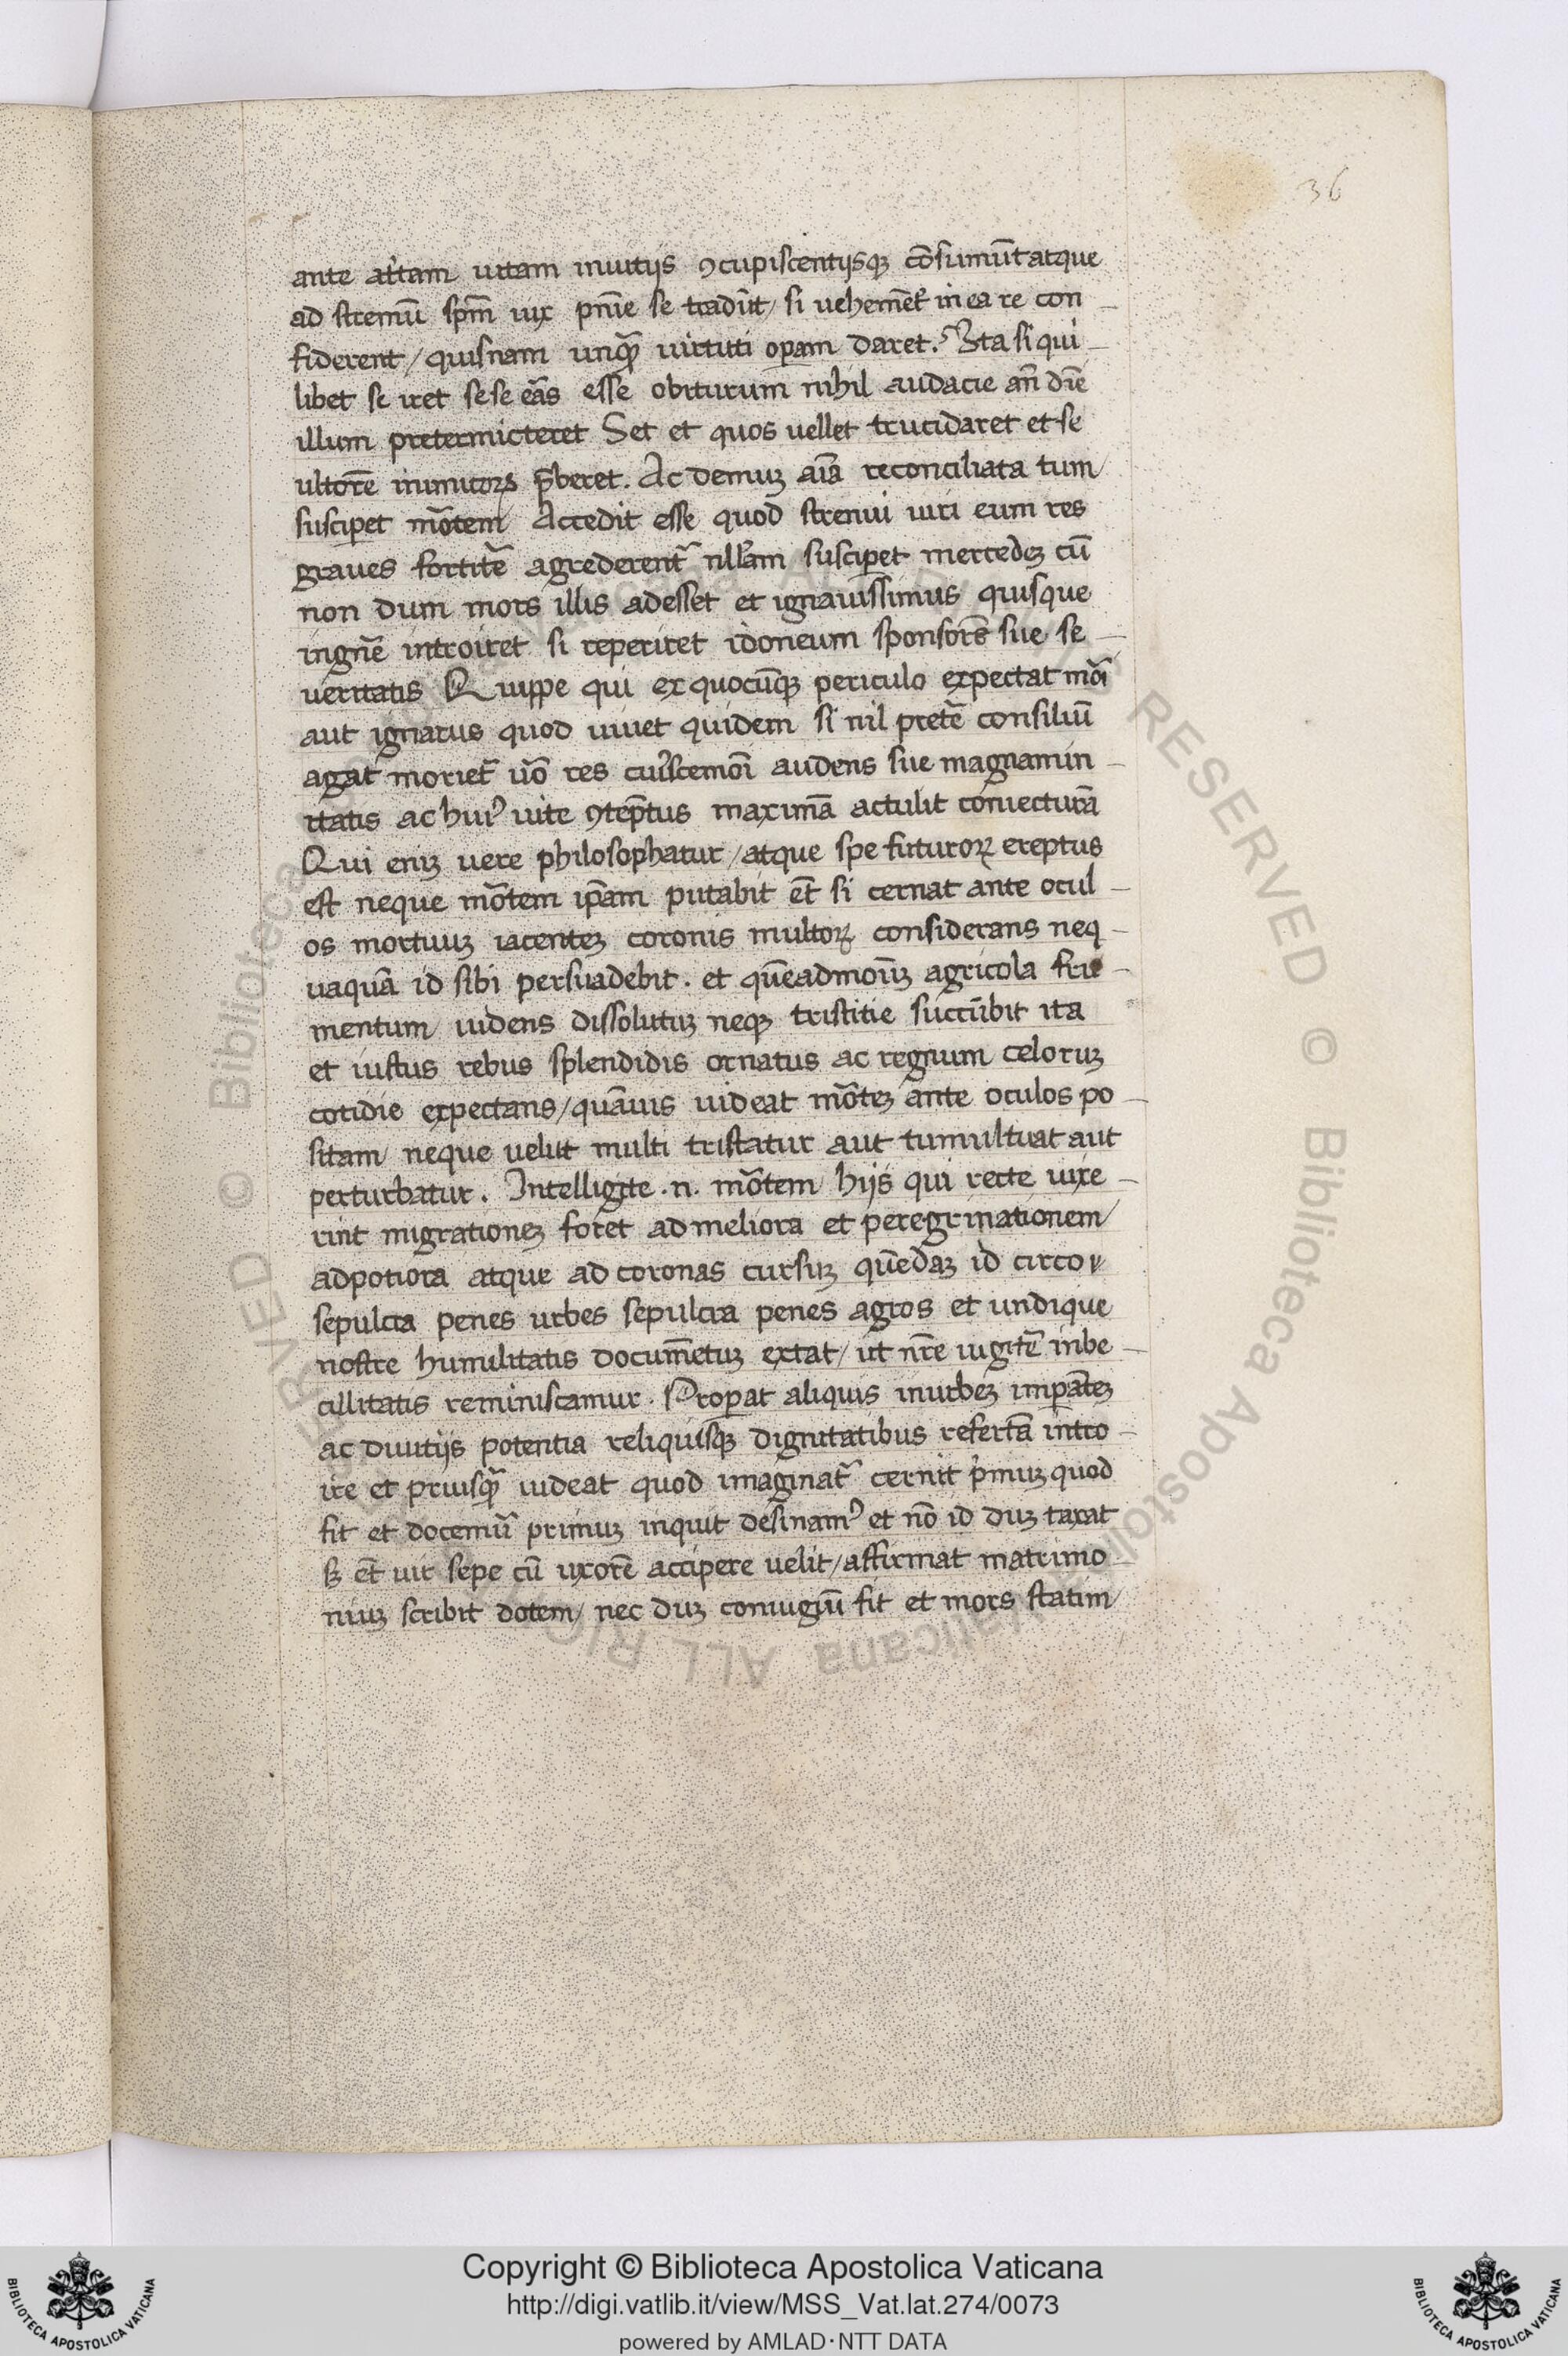 36
ante at̃tam uitam inuitijs ꝯcupiscentijsqꝫ cõsumũt atque
ad stremũ spm̃ uix pñie se tradũt / si uehemẽt̃ in ea re con
fiderent / quisnam unq̃ꝫ uirtuti opam daret. Ita si qui
libet se iret sese eãs esse obiturum nihil audacie añ diẽ
illum pretermicteret Set et quos uellet trucidaret et se
ultorẽ inimicoꝝ p̃beret. Ac demuꝫ aĩa reconciliata tum
suscipet mõtem Accedit esse quod strenui uiri eum res
graues fortit̃e agrederent̃ nll̃am susciperet mercedeꝫ cũ
non dum mors illis adesset et ignauissimus quisque
ingñe introiret si reperiret idoneum sponsorẽ sue se
ueritatis Quippe qui ex quocũqꝫ periculo expectat mõi
aut ignarus quod uiuet quidem si nil pret̃e consiliũ
agat moriet̃ ũo res cuiuscemõi audens sue magnamin
itatis ac huiꝰ uite ꝯtẽptus maximã actulit coniecturã
Qui eniꝫ uere philosophatur / atque spe futuroꝝ ereptus
est neque mõtem ip̃am putabit et̃ si cernat ante ocul
os mortuuꝫ iacenteꝫ coronis multoꝝ considerans neq
uaquã id sibi persuadebit. et quẽadmoduꝫ agricola fru
mentum uidens dissolutuꝫ neqꝫ tristitie succũbit ita
et iustus rebus splendidis ornatus ac regnum celoruꝫ
cotidie expectans / quãuis uideat mõteꝫ ante oculos po
sitam neque uelut multi tristatur aut tumultuat aut
perturbatur. Intelligite .n. mõtem hijs qui recte uixe
rint migrationeꝫ foret ad meliora et peregrinationem
adpotiora atque ad coronas cursuꝫ quẽdaꝫ id circo
sepulcra penes urbes sepulcra penes agros et undique
nostre humilitatis documẽtuꝫ extat / ut nr̃e iugit̃e inbe
cillitatis reminiscamur. Properat aliquis inurbeꝫ imperãteꝫ
ac diuitijs potentia reliquisqꝫ dignitatibus refertã intro
ire et priusq̃ꝫ uideat quod imaginat̃ cernit p̃muꝫ quod
fit et docemũ primuꝫ inquit desinamꝰ et nõ id duꝫ taxat
sꝫ et̃ uir sepe cũ uxorẽ accipere uelit / affirmat matrimo
niuꝫ scribit dotem / nec duꝫ coniugiũ fit et mors statim
Copyright © Biblioteca Apostolica Vaticana
http://digi.vatlib.it/view/MSS_Vat.lat.274/0073
powered by AMLAD·NTT DATA
BIBLIOTECA APOSTOLICA VATICANA
BIBLIOTECA APOSTOLICA VATICANA
© Biblioteca Apostolica Vaticana ALL RIGHTS RESERVED